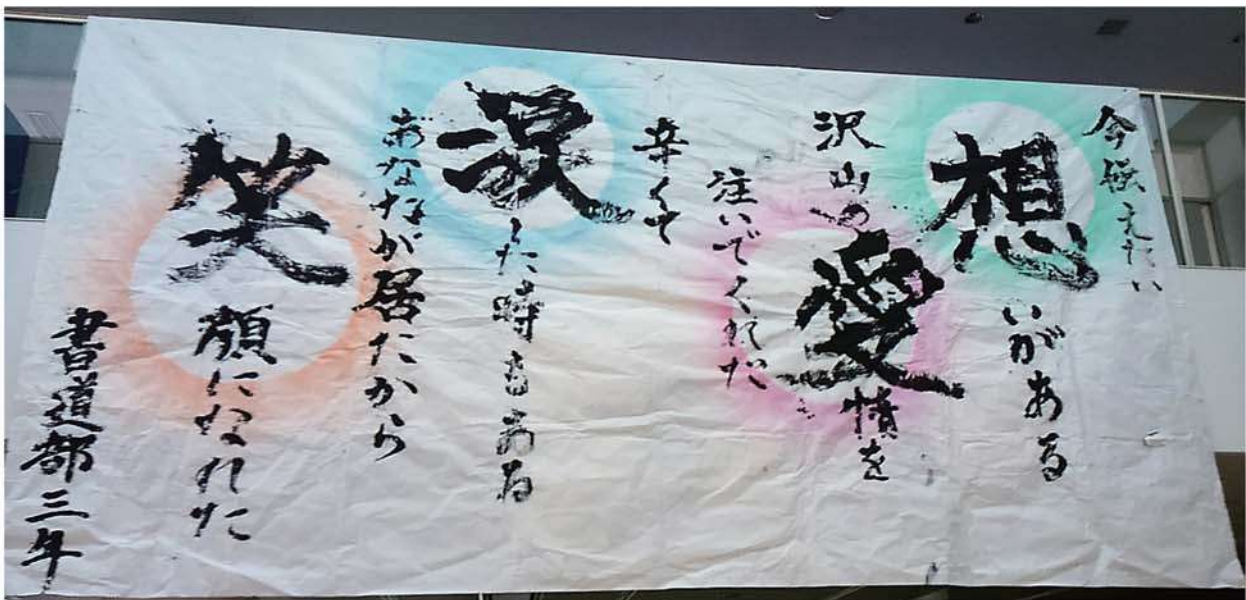 今伝えたい
想いがある
沢山の愛情を
注いでくれた
辛くて
涙した時もある
あなたが居たから
笑顔になれた
書道部三年